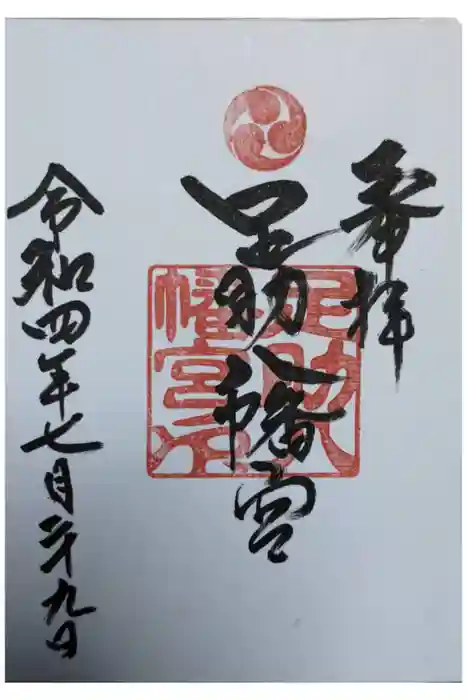 奉拝
足助八幡宮
足助八
幡宮
令和四年七月二十九日